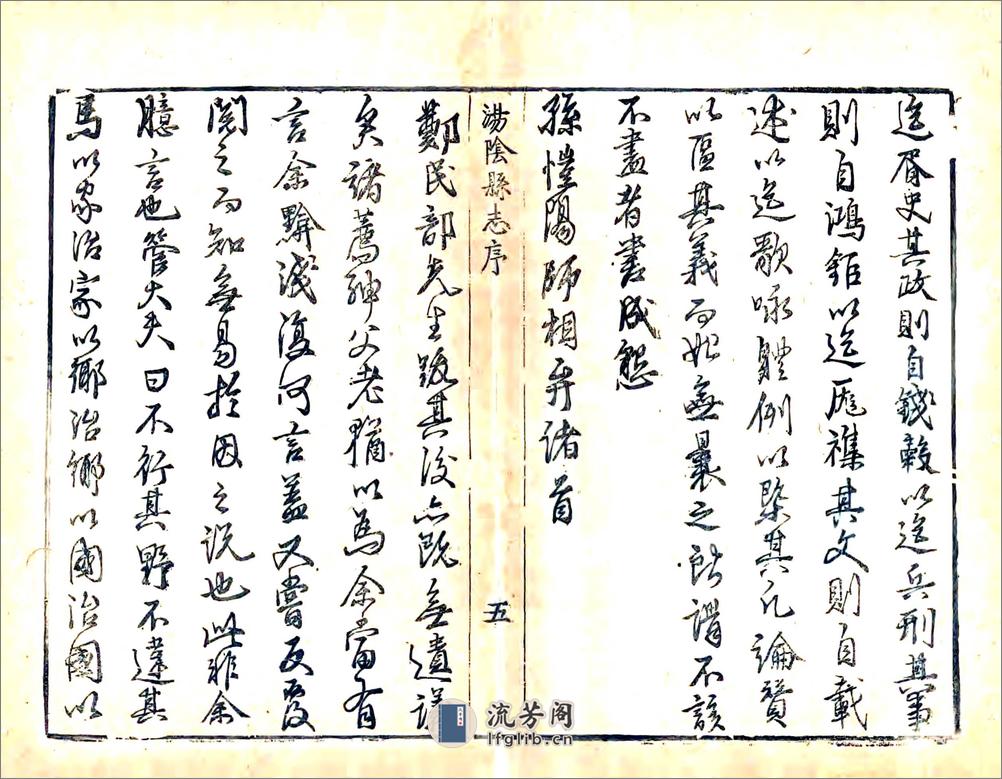 迄胥史其政則自錢穀以迄兵刑其事
則自鴻鉅以迄厖襍其文則自載
述以迄歌咏體例以槩其凡論贊
以區其義而始無曩之所謂不該
不盡者書成懇
孫愷陽師相弁諸首
湯陰縣志序
五
鄭民部先生跋其後亦既無遺議
矣諸薦紳父老猶以為余當有
言余黭淺復何言葢又嘗反覆
閱之而知無易於因之說也此非余
臆言也管大夫曰不行其野不違其
馬以家治家以鄉治鄉以國治國以
流芳阁
lfglib.cn